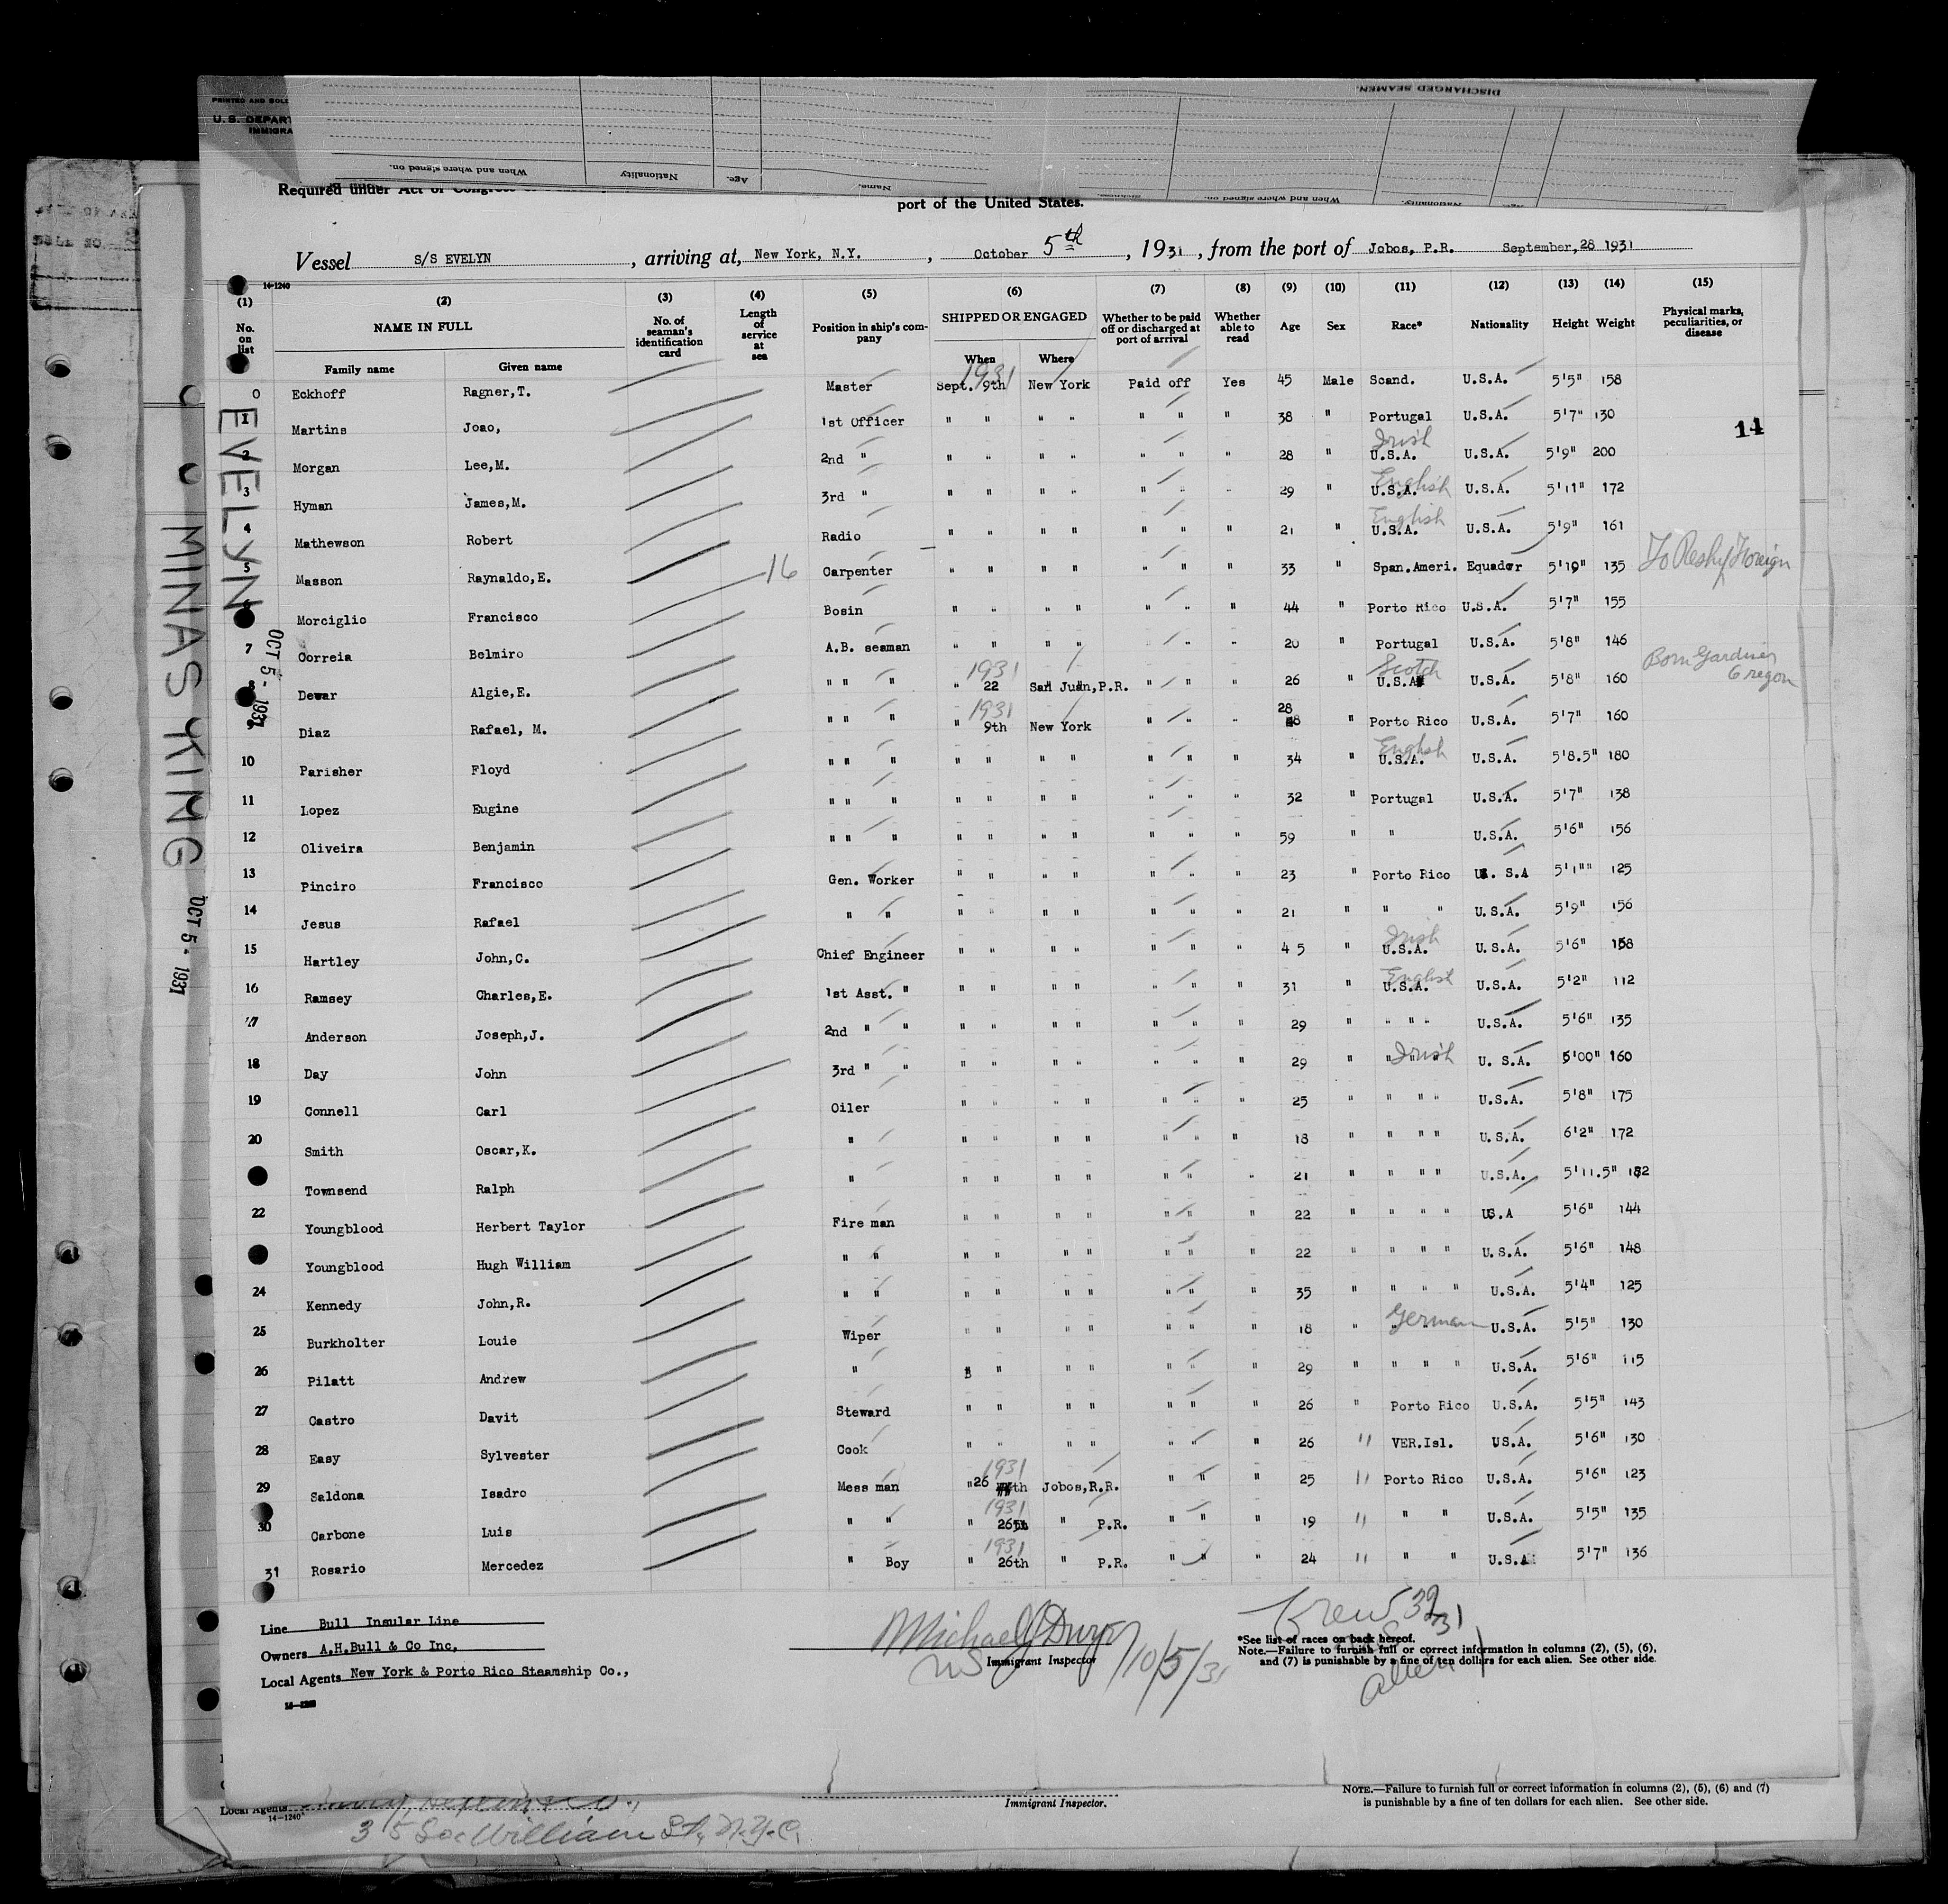 PRINTED AND SOLD
U. S. DEPART
IMMIGRA
DISCHARGED SEAMEN.
When and where signed on.
Nationality
Age.
Name.
When and where signed on.
Nationality
Required under Act of Congress
port of the United States.
Vessel S/S EVELYN, arriving at, New York, N.Y., October 5th, 1931, from the port of Jobos, P.R. September,28 1931
14-1240
(1) (2) (3) (4) (5) (6) (7) (8) (9) (10) (11) (12) (13) (14) (15)
No. on list NAME IN FULL Family name Given name No. of seaman's identification card Length of service at sea Position in ship's company SHIPPED OR ENGAGED When Where Whether to be paid off or discharged at port of arrival Whether able to read Age Sex Race* Nationality Height Weight Physical marks, peculiarities, or disease
0 Eckhoff Ragner,T. Master Sept. 9th 1931 New York Paid off Yes 45 Male Scand. U.S.A. 5'5" 158
1 Martins Joao, 1st Officer " " " " " " " 38 " Portugal U.S.A. 5'7" 130
14
2 Morgan Lee,M. 2nd " " " " " " " " 28 " Irish U.S.A. U.S.A. 5'9" 200
3 Hyman James,M. 3rd " " " " " " " " 29 " English U.S.A. U.S.A. 5'11" 172
4 Mathewson Robert Radio " " " " " " " 21 " English U.S.A. U.S.A. 5'9" 161
5 Masson Raynaldo,E. 16 Carpenter " " " " " " " 33 " Span.Ameri. Equador 5'10" 135 To Reship Foreign
Morciglio Francisco Bosin " " " " " " " 44 " Porto Rico U.S.A. 5'7" 155
7 Correia Belmiro A.B. seaman " " " " " " " 20 " Portugal U.S.A. 5'8" 146
8 Dewar Algie,E. " " " " 22 1931 San Juan,P.R. " " " 26 " Scotch U.S.A. U.S.A. 5'8" 160 Born Gardner Oregon
9 Diaz Rafael, M. " " " " 9th 1931 New York " " " 28 " Porto Rico U.S.A. 5'7" 160
10 Parisher Floyd " " " " " " " " " " 34 " English U.S.A. U.S.A. 5'8.5" 180
11 Lopez Eugine " " " " " " " " " " 32 " Portugal U.S.A. 5'7" 138
12 Oliveira Benjamin " " " " " " " " " " 59 " " U.S.A. 5'6" 156
13 Pinciro Francisco Gen. Worker " " " " " " 23 " Porto Rico U. S.A 5'1"" 125
14 Jesus Rafael " " " " " " " " " 21 " " " U.S.A. 5'9" 156
15 Hartley John,C. Chief Engineer " " " " " " " 45 " Irish U.S.A. U.S.A. 5'6" 158
16 Ramsey Charles,E. 1st Asst. " " " " " " " " 31 " English U.S.A. U.S.A. 5'2" 112
17 Anderson Joseph,J. 2nd " " " " " " " " " 29 " " " " U.S.A. 5'6" 135
18 Day John 3rd " " " " " " " " " 29 " Irish U. S.A. 5'00" 160
19 Connell Carl Oiler " " " " " " " 25 " " " " U.S.A. 5'8" 175
20 Smith Oscar,K. " " " " " " " " 18 " " " " U.S.A. 6'2" 172
Townsend Ralph " " " " " " " " 21 " " " " U.S.A. 5'11.5" 182
22 Youngblood Herbert Taylor Fire man " " " " " " " 22 " " " " US.A 5'6" 144
Youngblood Hugh William " " " " " " " " " 22 " " " " U.S.A. 5'6" 148
24 Kennedy John,R. " " " " " " " " " 35 " " " " U.S.A. 5'4" 125
25 Burkholter Louie Wiper " " " " " " " 18 " German U.S.A. 5'5" 130
26 Pilatt Andrew " " " " " " " 29 " " " " U.S.A. 5'6" 115
27 Castro Davit Steward " " " " " " " 26 " Porto Rico U.S.A. 5'5" 143
28 Easy Sylvester Cook " " " " " " " 26 " VER.Isl. US.A. 5'6" 130
29 Saldona Isadro Mess man " 26 th 1931 Jobos,R.R. " " " 25 " Porto Rico U.S.A. 5'6" 123
30 Carbone Luis " " " 26th 1931 " P.R. " " " 19 " " " U.S.A. 5'5" 135
31 Rosario Mercedez " Boy " 26th 1931 " P.R. " " " 24 " " " U.S.A. 5'7" 136
EVELYN
OCT 5 - 1931
MINAS KING
OCT 5 - 1931
Line Bull Insular Line
Owners A.H.Bull & Co Inc,
Local Agents New York & Porto Rico Steamship Co.,
Immigrant Inspector
10/5/31
Crew 32
31
alien 1
*See list of races on back hereof.
Note.—Failure to furnish full or correct information in columns (2), (5), (6), and (7) is punishable by a fine of ten dollars for each alien. See other side.
Local Agents
14-1240
35 So. William St., N.Y.C.
Immigrant Inspector.
NOTE.—Failure to furnish full or correct information in columns (2), (5), (6) and (7)
is punishable by a fine of ten dollars for each alien. See other side.